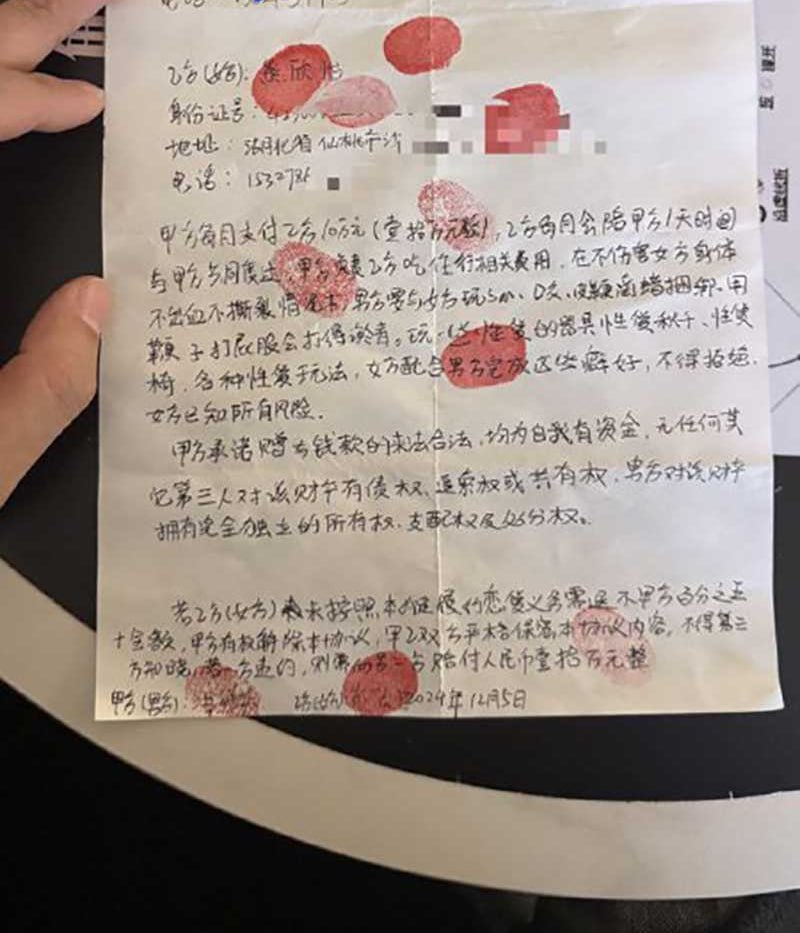 乙方(女方):
身份证号:
地址: 湖北省仙桃市
电话: 1532786
甲方每月支付乙方10万元(壹拾万元整),乙方每月会陪甲方1天时间
与甲方共同度过,甲方 乙方吃住行相关费用,在不伤害女方身体
不出血不撕裂情况下,男方要与女方玩sm、 滴蜡捆绑、用
鞭子打屁股会打得 。玩一些性爱的器具性爱秋千、性爱
椅,各种性爱玩法,女方配合男方完成这些癖好,不得拒绝,
女方已知所有风险。
甲方承诺赠与钱款的来法合法,均为自我有资金,无任何其
它第三人对该财产有债权、追索权或共有权,男方对该财产
拥有完全独立的所有权,支配权及处分权。
若乙方(女方) 未按照本 履行恋爱义务需退 甲方百分之五
十金额,甲方有权解除本协议,甲乙双方严格保密本协议内容,不得第三
方知晓,若一方违约,则需向另一方赔付人民币壹拾万元整
甲方(男方): 2024年12月5日